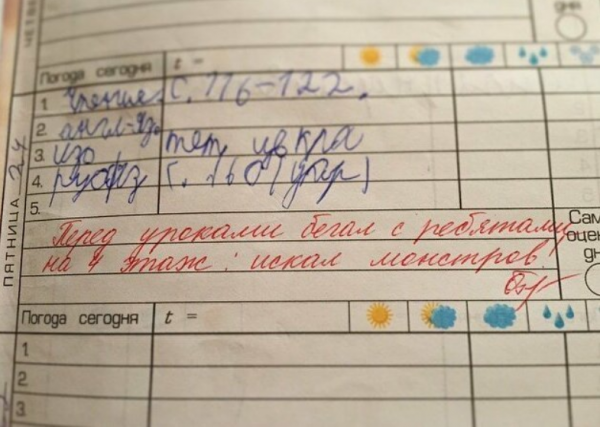 ЧЕТВЕ
дня
Погода сегодня t =
1. Чтение с. 116-122.
2. англ-яз.
3. изо
4. с. 160 (упр)
5.
ПЯТНИЦА 24
Перед уроками бегал с ребятами
на 4 этаж: искал монстров
Сам
оцен
дн
Погода сегодня t =
1.
2.
3.